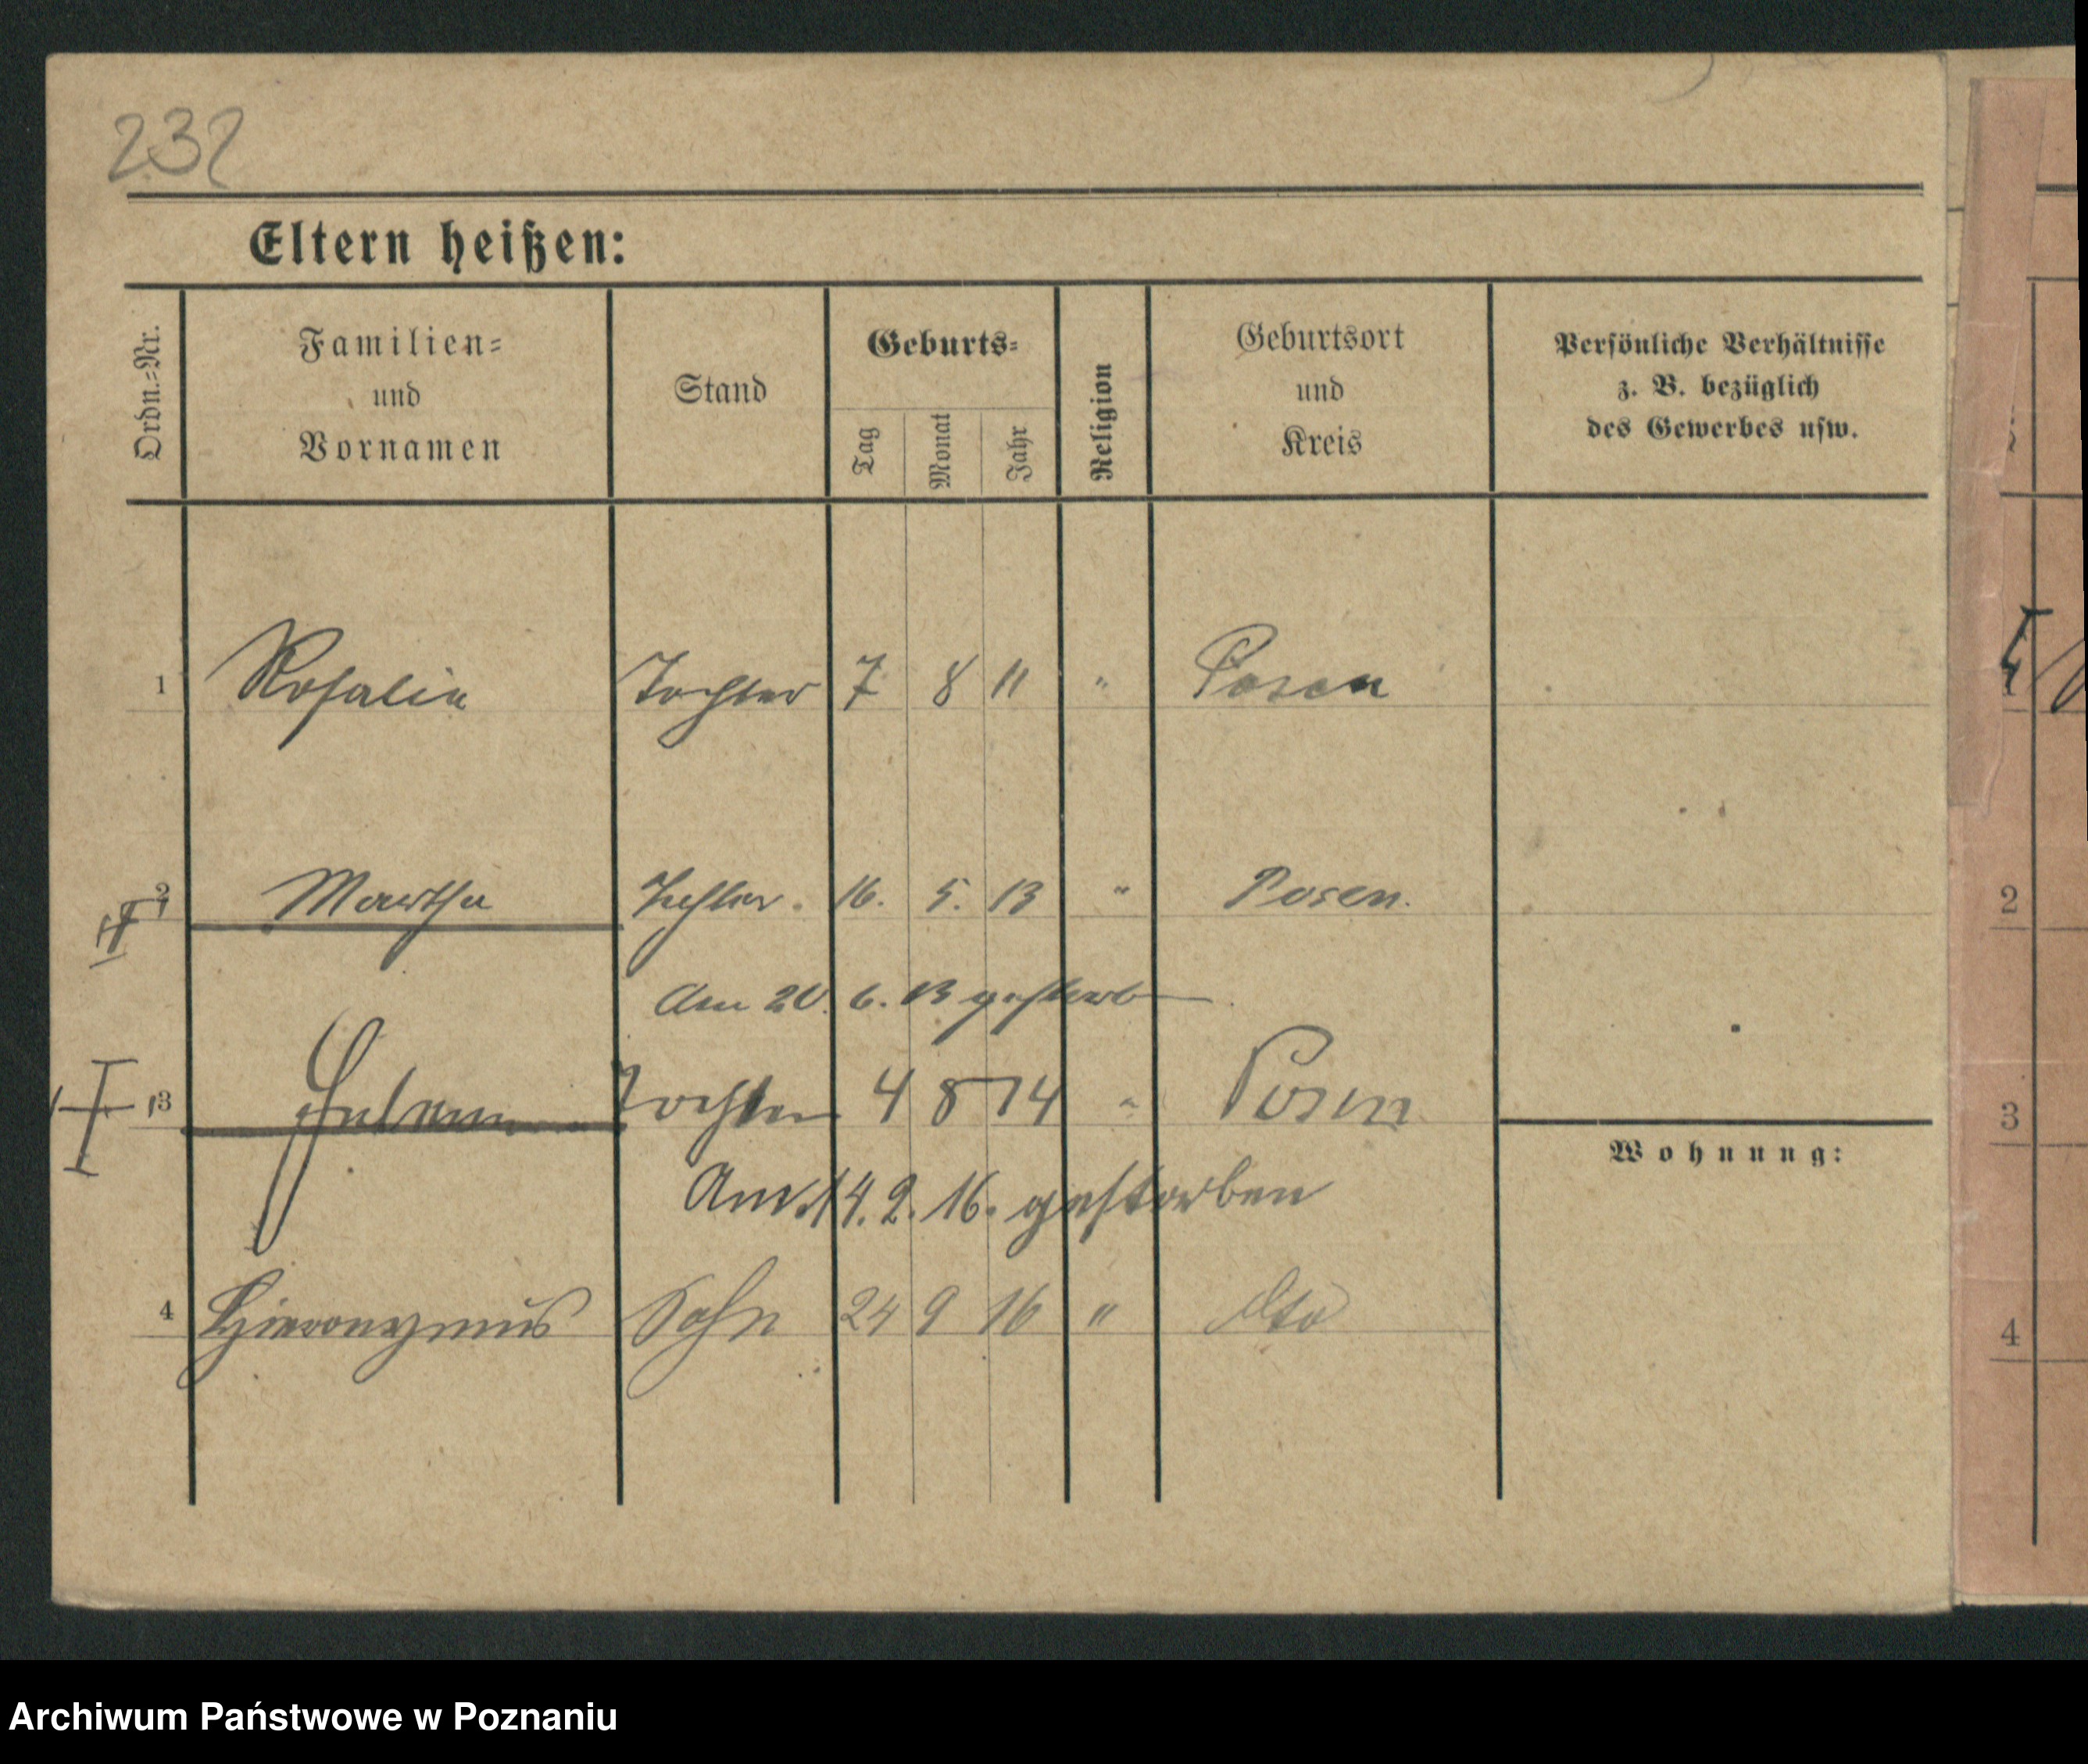 232
Eltern heißen:
Ordn.=Nr. Familien= und Vornamen Stand Geburts= Tag Monat Jahr Religion Geburtsort und Kreis Persönliche Verhältnisse z. B. bezüglich des Gewerbes usw.
1 Rosalie Tochter 7 8 11 " Posen
2 Martha Tochter. 16. 5. 13 " Posen.
Am 20. 6. 13 gestorb
3 Tochter 4 8 14 " Posen
Wohnung:
Am 14. 2. 16. gestorben
4 Hieronymus Sohn 24 9 16 " dto
2
3
4
Archiwum Państwowe w Poznaniu